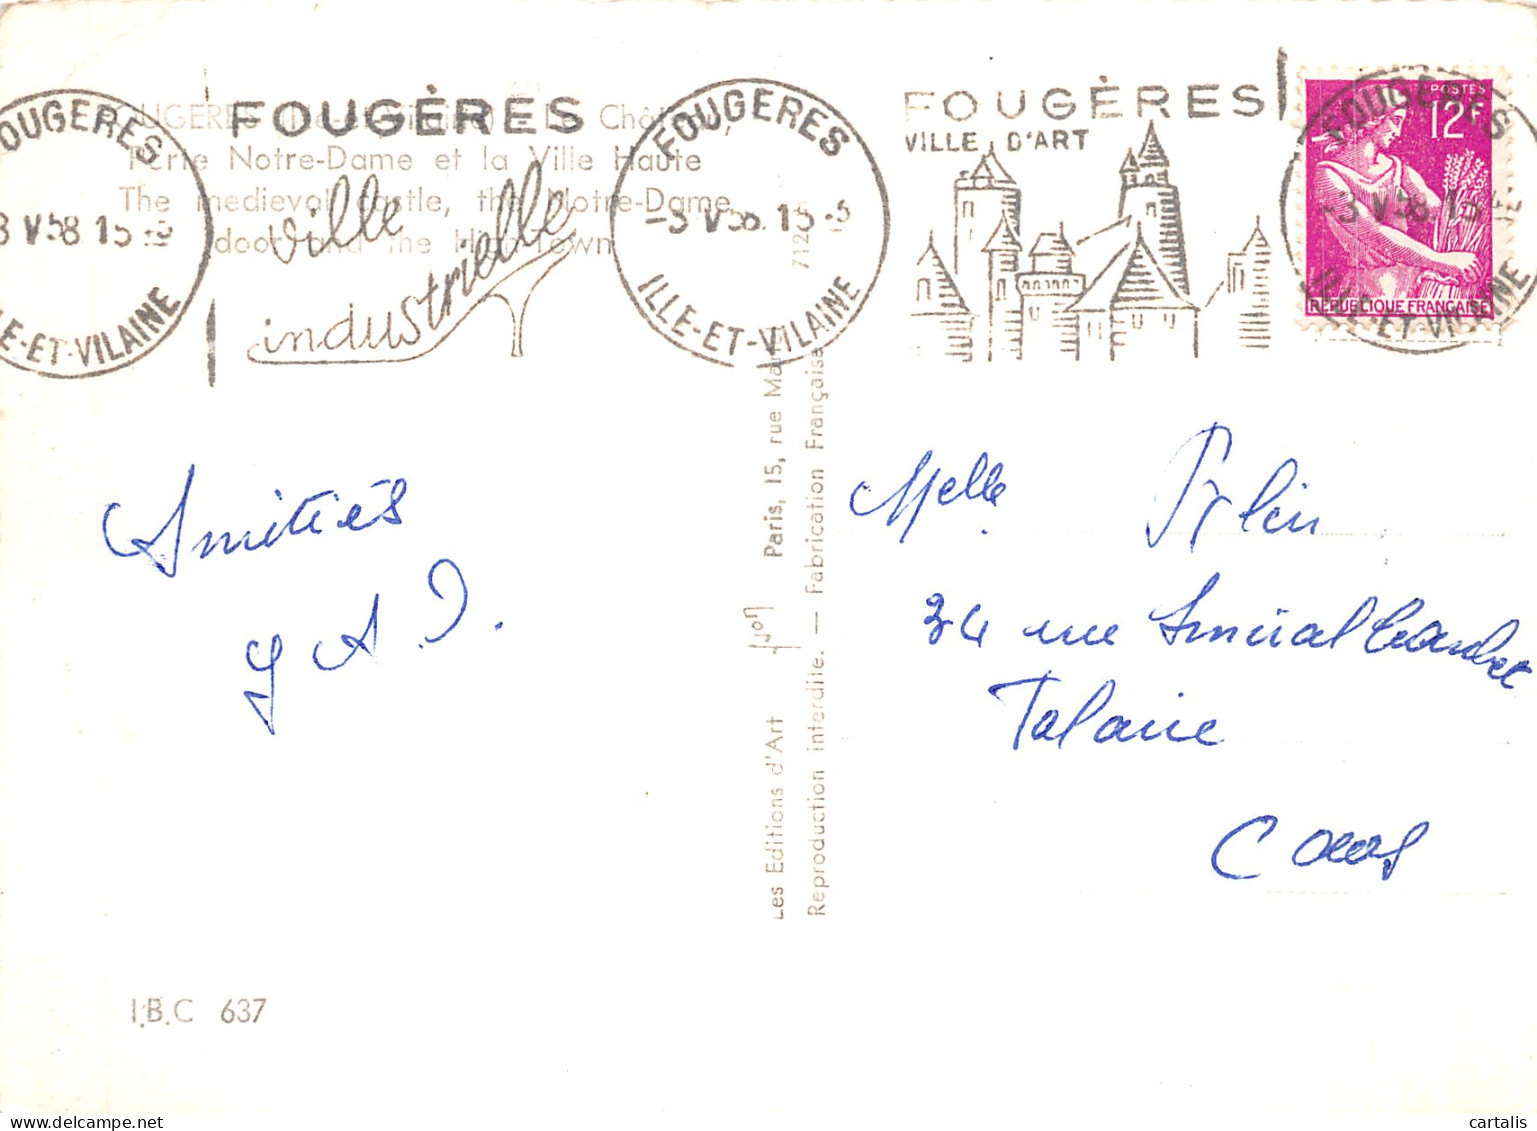 FOUGÈRES (Ille-et-Vilaine) - Le Château,
Porte Notre-Dame et la Ville Haute
The medieval castle, the Notre-Dame
door and the High Town
FOUGÈRES
ville
industrielle
FOUGERES
-3 V 58 15
ILLE-ET-VILAINE
FOUGERES
-3 V 58 15
ILLE-ET-VILAINE
FOUGÈRES
VILLE D'ART
POSTES
12F
REPUBLIQUE FRANÇAISE
FOUGERES
-3 V 58 15
ILLE-ET-VILAINE
Amitiés
Melle
34 rue
Talaire
Les Editions d'Art Yvon Paris, 15, rue
Reproduction interdite. — Fabrication Française
I.B.C 637
cartalis